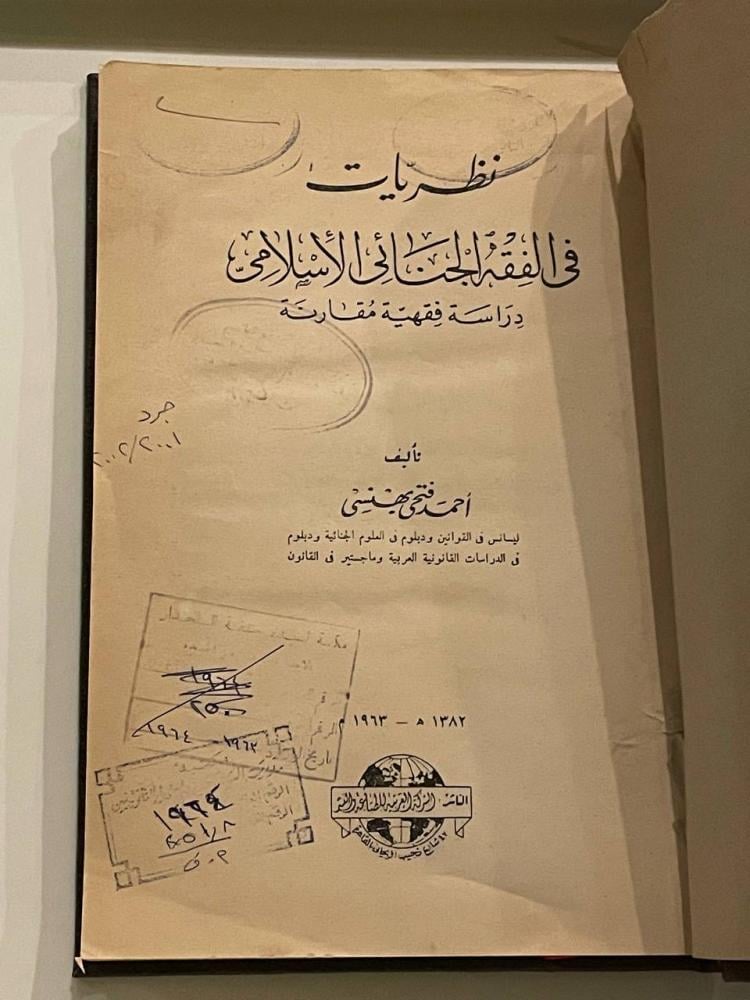 نظريات
فى الفقه الجنائى الأسلامى
دراسة فقهية مقارنة
جرد
٢٠٠٢/٢٠٠١
تأليف
أحمد فتحى بهنسى
ليسانس فى القوانين ودبلوم فى العلوم الجنائية ودبلوم
فى الدراسات القانونية العربية وماجستير فى القانون
٢٥٠
١٩٦٣ - ١٩٦٤
١٣٨٢ ه - ١٩٦٣ م
الناشر: الشركة العربية للطباعة والنشر
٤٧ شارع نجيب الريحانى القاهرة